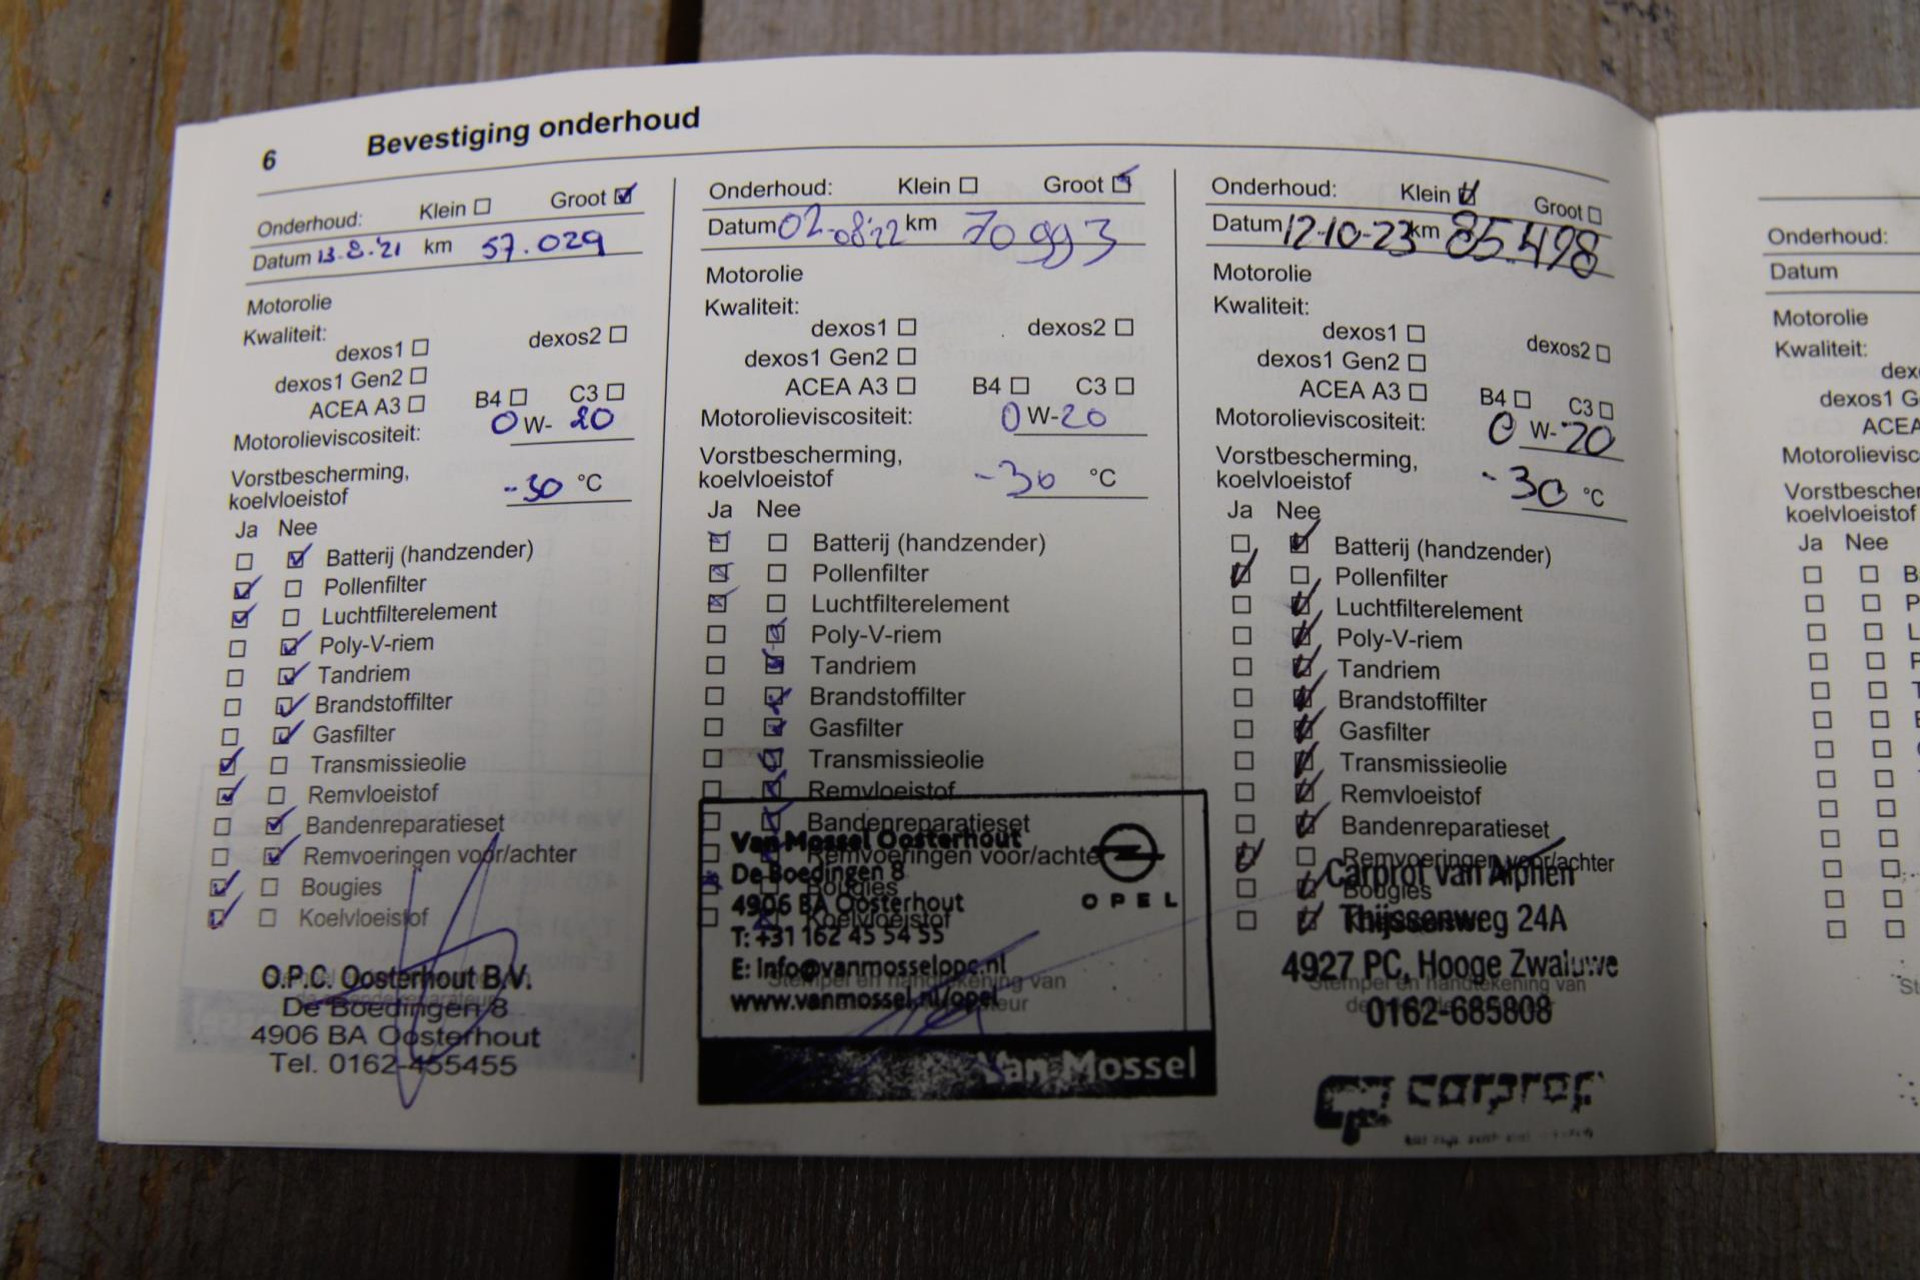 6 Bevestiging onderhoud
Onderhoud: Klein Groot
Datum 13-8-'21 km 57.029
Motorolie
Kwaliteit:
dexos1 dexos2
dexos1 Gen2
ACEA A3 B4 C3
Motorolieviscositeit: 0 W- 20
Vorstbescherming,
koelvloeistof -30 °C
Ja Nee
Batterij (handzender)
Pollenfilter
Luchtfilterelement
Poly-V-riem
Tandriem
Brandstoffilter
Gasfilter
Transmissieolie
Remvloeistof
Bandenreparatieset
Remvoeringen voor/achter
Bougies
Koelvloeistof
O.P.C. Oosterhout B.V.
De Boedingen 8
4906 BA Oosterhout
Tel. 0162-455455
Onderhoud: Klein Groot
Datum 02-08-22 km 70993
Motorolie
Kwaliteit:
dexos1 dexos2
dexos1 Gen2
ACEA A3 B4 C3
Motorolieviscositeit: 0 W-20
Vorstbescherming,
koelvloeistof -30 °C
Ja Nee
Batterij (handzender)
Pollenfilter
Luchtfilterelement
Poly-V-riem
Tandriem
Brandstoffilter
Gasfilter
Transmissieolie
Remvloeistof
Bandenreparatieset
Van Mossel Oosterhout
Remvoeringen voor/achte
De Boedingen 8
Bougies
4906 BA Oosterhout
OPEL
Koelvloeistof
T: +31 162 45 54 55
E: Info@vanmosselopc.nl
Stempel en handtekening van
www.vanmossel.nl/opel
Van Mossel
Onderhoud: Klein Groot
Datum 12-10-23 km 85.498
Motorolie
Kwaliteit:
dexos1 dexos2
dexos1 Gen2
ACEA A3 B4 C3
Motorolieviscositeit: 0 W-20
Vorstbescherming,
koelvloeistof -30 °C
Ja Nee
Batterij (handzender)
Pollenfilter
Luchtfilterelement
Poly-V-riem
Tandriem
Brandstoffilter
Gasfilter
Transmissieolie
Remvloeistof
Bandenreparatieset
Remvoeringen voor/achter
Carprof van Alphen
Bougies
Thijssenweg 24A
4927 PC, Hooge Zwaluwe
Stempel en handtekening van
0162-685808
carprof
Onderhoud:
Datum
Motorolie
Kwaliteit:
dex
dexos1 G
ACEA
Motorolievisc
Vorstbescher
koelvloeistof
Ja Nee
B
P
L